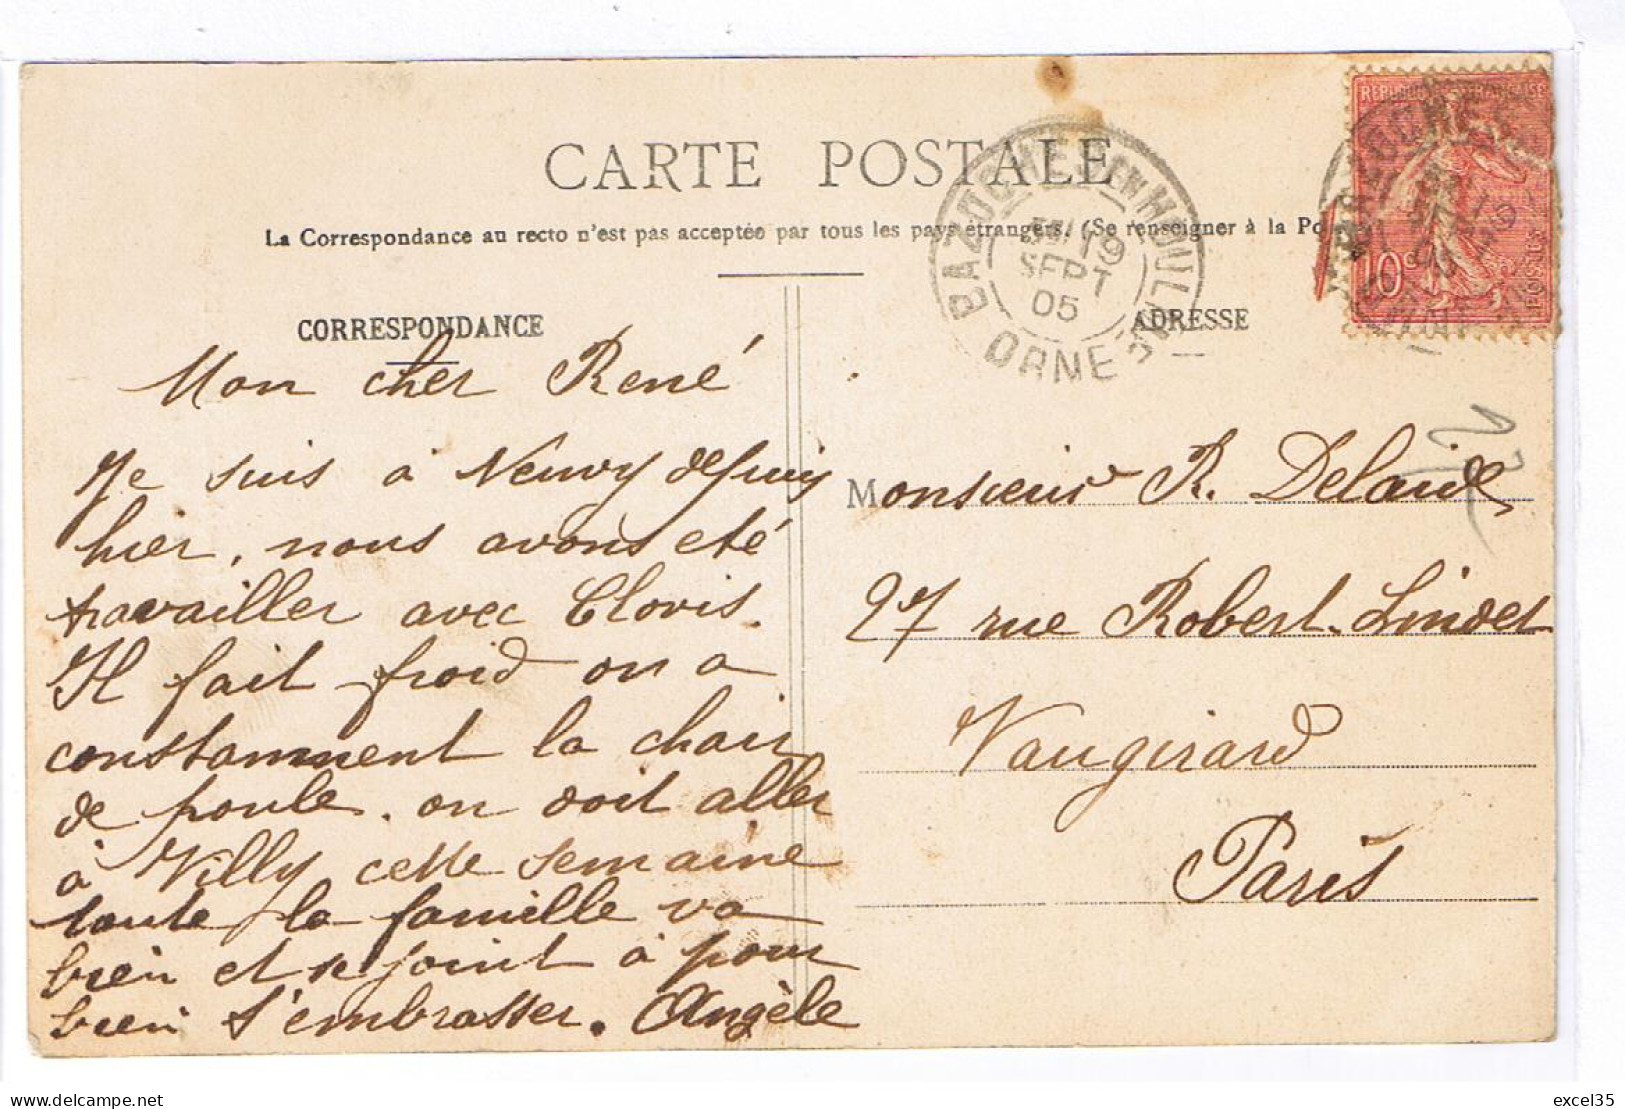 CARTE POSTALE
La Correspondance au recto n'est pas acceptée par tous les pays étrangers. (Se renseigner à la Po
CORRESPONDANCE
Mon cher René
Je suis à Neuvy depuis
hier, nous avons eté
travailler avec Clovis.
Il fait froid on a
constamment la chair
de poule. on doit aller
à Villy cette semaine
toute la famille va
bien et se joint à pour
bien t'embrasser. Angèle
BAZOCHES-EN-HOULME
19
SEPT
05
ORNE
ADRESSE
REPUBLIQUE FRANÇAISE
10c
POSTES
Monsieur R. Delaide
27 rue Robert-Lindet
Vaugirard
Paris
Delcampe.net
excel35